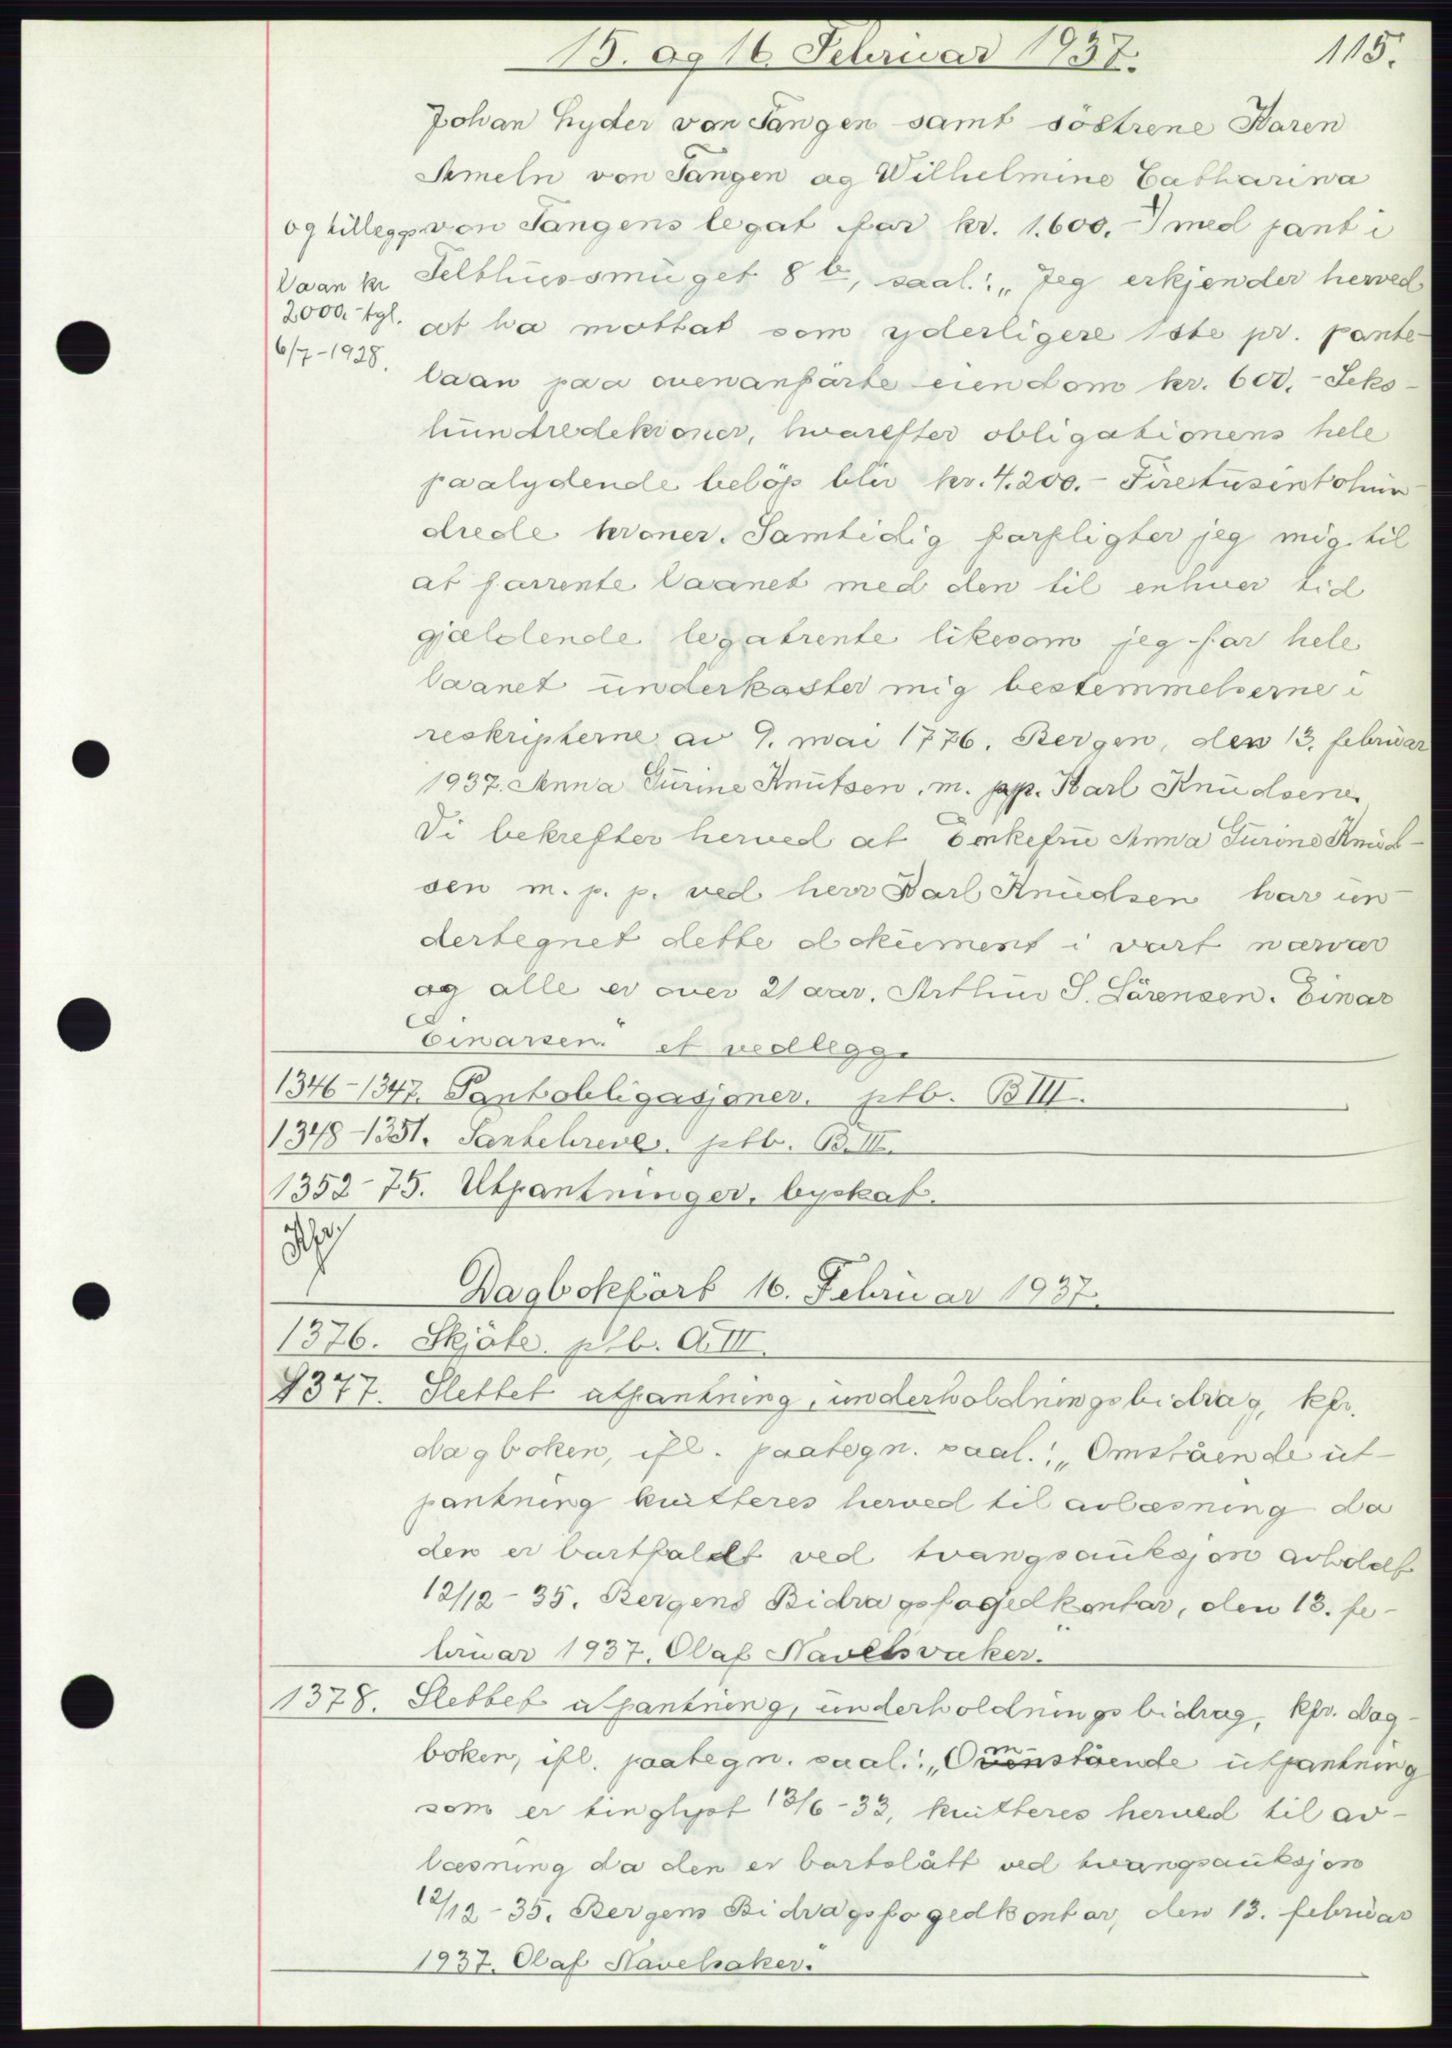 15. og 16. Februar 1937.
115.
Johan Lyder von Tangen samt söstrene Karen
Ameln von Tangen og Wilhelmine Catharina
von Tangens legat for kr. 1.600.-¹) med pant i
og tillegg
laan kr
2000.- tgl.
6/7-1928.
Telthussmuget 8 b, saal.: „Jeg erkjender herved
at ha mottat som yderligere 1ste pr. pante-
laan paa ovenanförte eiendom kr. 600.- Seks-
hundredekroner, hvorefter obligationens hele
paalydende belöp blir kr. 4.200.- Firetusintohun-
drede kroner. Samtidig forpligter jeg mig til
at forrente laanet med den til enhver tid
gjældende legatrente likesom jeg for hele
laanet underkaster mig bestemmelserne i
reskripterne av 9. mai 1776. Bergen, den 13. februar
1937. Anna Gurine Knutsen. m. pp. Karl Knudsen.
Vi bekrefter herved at Enkefru Anna Gurine Knud-
sen m. p. p. ved herr Karl Knudsen har un-
dertegnet dette dokument i vort nærvær
og alle er over 21 aar. Arthur S. Sörensen. Einar
Einarsen.“ et vedlegg.
1346-1347. Pantobligasjoner. ptb. B III.
1348-1351. Pantebreve. ptb. B. III.
1352-75. Utpantninger, byskat.
Dagbokfört 16. Februar 1937.
1376. Skjöte. ptb. A. III.
1377. Slettet utpantning, underholdningsbidrag, kfr.
dagboken, ifl. paategn. saal.: „Omstående ut-
pantning kvitteres herved til avlæsning da
den er bortfaldt ved tvangsauksjon avholdt
12/12-35. Bergens Bidragsfogedkontor, den 13. fe-
bruar 1937. Olaf Navelsaker.“
1378. Slettet utpantning, underholdningsbidrag, kfr. dag-
boken, ifl. paategn. saal.: „Omstående utpantning
som er tinglyst 13/6-33, kvitteres herved til av-
læsning da den er bortslått ved tvangsauksjon
12/12-35. Bergens Bidragsfogedkontor, den 13. februar
1937. Olaf Navelsaker.“